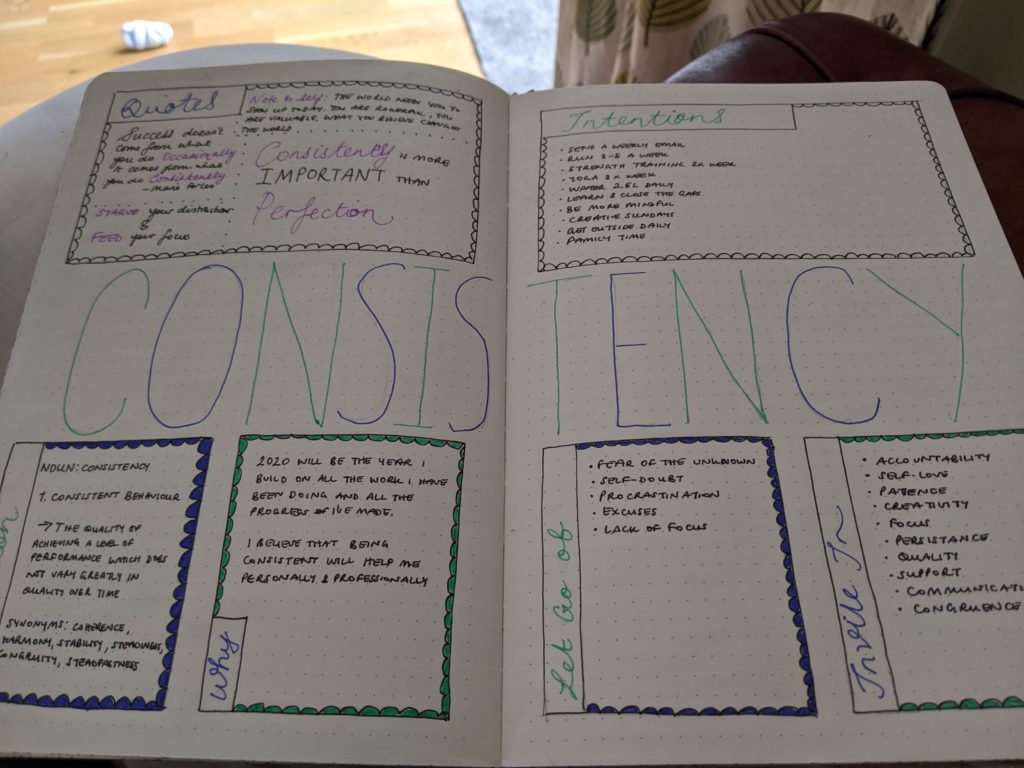 Quotes
Note to self: THE WORLD NEEDS YOU TO
SHOW UP TODAY. YOU ARE POWERFUL, YOU
ARE VALUABLE, WHAT YOU BELIEVE CHANGES
THE WORLD
Success doesn't
come from what
you do Occasionally
it comes from what
you do Consistently
- Marie Forleo
STARVE your distraction
&
FEED your focus
Consistently IS MORE
IMPORTANT THAN
Perfection
Intentions
• SEND A WEEKLY EMAIL
• RUN 3-5 A WEEK
• STRENGTH TRAINING 2X WEEK
• YOGA 3X WEEK
• WATER 2.5L DAILY
• LEARN & CLOSE THE GAPS
• BE MORE MINDFUL
• CREATIVE SUNDAYS
• GET OUTSIDE DAILY
• FAMILY TIME
CONSISTENCY
NOUN: CONSISTENCY
1. CONSISTENT BEHAVIOUR
→ THE QUALITY OF
ACHIEVING A LEVEL OF
PERFORMANCE WHICH DOES
NOT VARY GREATLY IN
QUALITY OVER TIME
SYNONYMS: COHERENCE,
HARMONY, STABILITY, STEADINESS,
CONGRUITY, STEADFASTNESS
Why
2020 WILL BE THE YEAR I
BUILD ON ALL THE WORK I HAVE
BEEN DOING AND ALL THE
PROGRESS I'VE MADE.
I BELIEVE THAT BEING
CONSISTENT WILL HELP ME
PERSONALLY & PROFESSIONALLY
Let Go of
• FEAR OF THE UNKNOWN
• SELF-DOUBT
• PROCRASTINATION
• EXCUSES
• LACK OF FOCUS
Invite In
• ACCOUNTABILITY
• SELF-LOVE
• PATENCE
• CREATIVITY
• FOCUS
• PERSISTANCE
• QUALITY
• SUPPORT
• COMMUNICATI
• CONGRUENCE